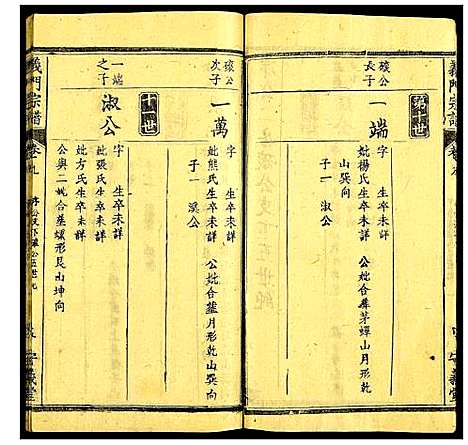 義門宗譜
第世
琰公
長子
一端
字 生卒未詳
妣楊氏生卒未詳 公妣合葬茅蟬山月形乾
山巽向
子一 淑公
琰公
次子
一萬
字 生卒未詳
妣熊氏生卒未詳 公妣合葬月形乾山巽向
子一 溪公
十世
一端
之子
淑公
字 生卒未詳
妣張氏生卒未詳
妣方氏生卒未詳
公與二妣合葬螺形艮山坤向
義門宗譜
卷九
義堂